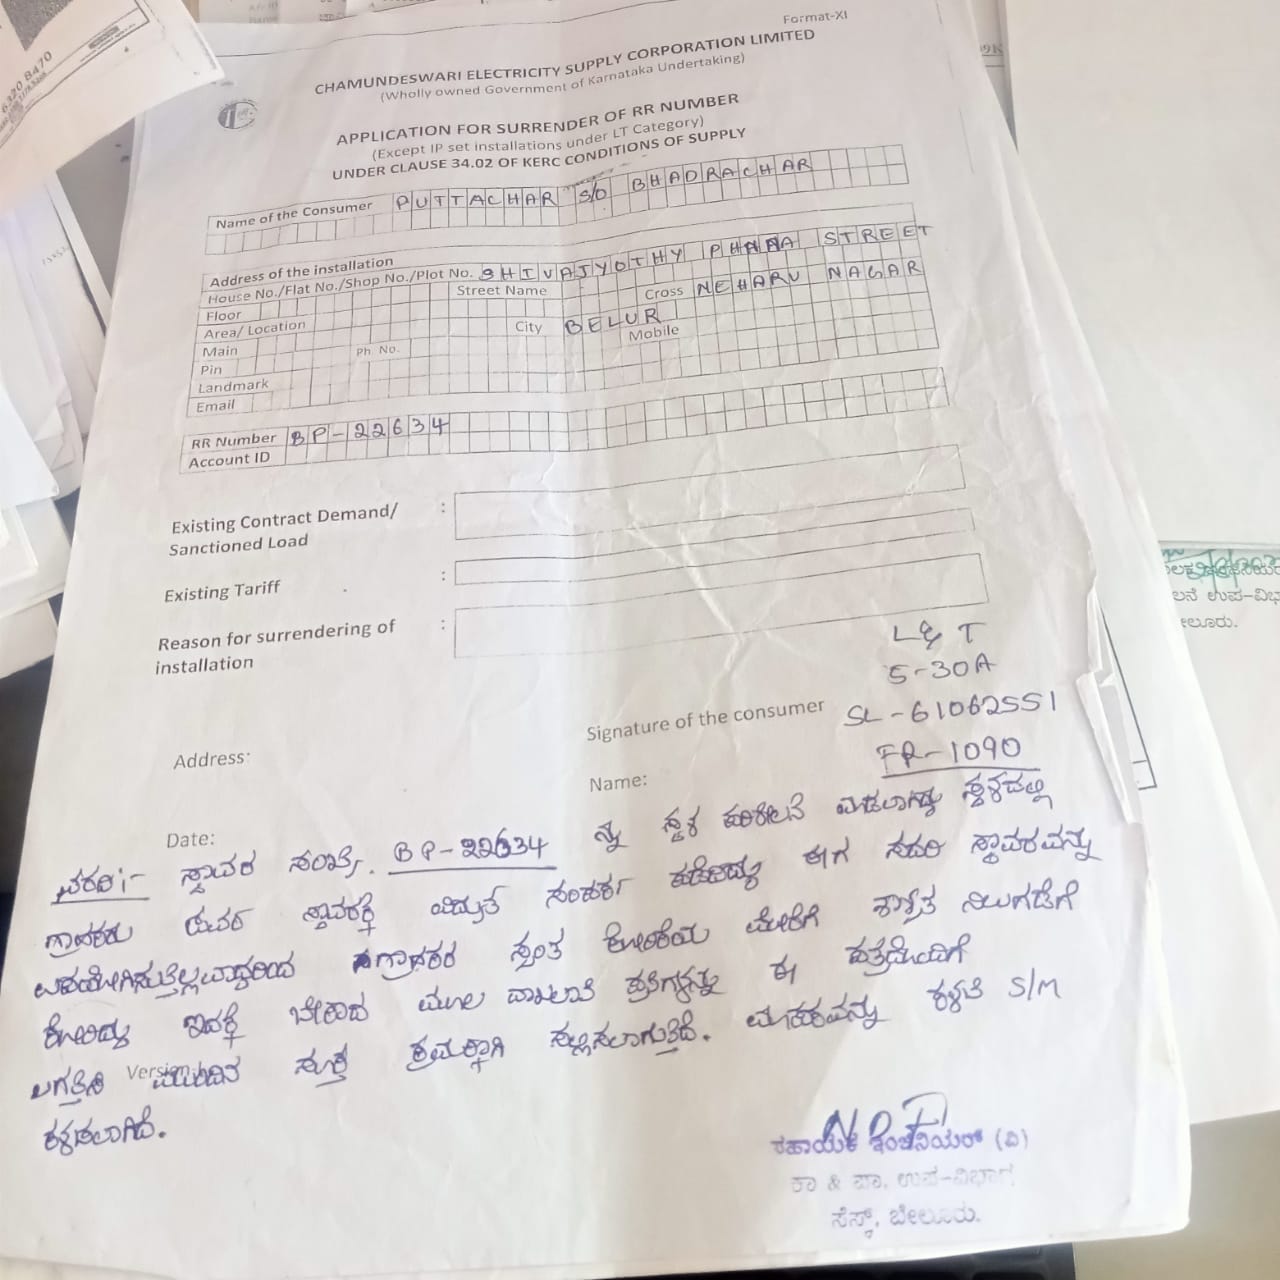 Format-XI
CHAMUNDESWARI ELECTRICITY SUPPLY CORPORATION LIMITED
(Wholly owned Government of Karnataka Undertaking)
APPLICATION FOR SURRENDER OF RR NUMBER
(Except IP set installations under LT Category)
UNDER CLAUSE 34.02 OF KERC CONDITIONS OF SUPPLY
Name of the Consumer PUTTACHAR S/O BHADRACHAR
Address of the installation
House No./Flat No./Shop No./Plot No. SHIVAJYOTHY STREET
Floor Street Name
Area/ Location Cross NEHARU NAGAR
Main City BELUR
Pin Ph No. Mobile
Landmark
Email
RR Number BP-22634
Account ID
Existing Contract Demand/
Sanctioned Load :
Existing Tariff :
Reason for surrendering of
installation :
L&T
5-30A
Signature of the consumer SL-61062551
FR-1090
Address:
Name:
Date:
ವರದಿ:- ಸ್ಥಾವರ ಸಂಖ್ಯೆ. BP-22634 ನ್ನು ಸ್ಥಳ ಪರಿಶೀಲನೆ ಮಾಡಲಾಗಿದ್ದು ಸ್ಥಳದಲ್ಲಿ
ಗ್ರಾಹಕರು ಸ್ಥಾವರಕ್ಕೆ ವಿದ್ಯುತ್ ಸಂಪರ್ಕ ಪಡೆದಿದ್ದು ಈಗ ಸದರಿ ಸ್ಥಾವರವನ್ನು
ಉಪಯೋಗಿಸುತ್ತಿಲ್ಲವಾದ್ದರಿಂದ ಗ್ರಾಹಕರ ಸ್ವಂತ ಕೋರಿಕೆಯ ಮೇರೆಗೆ ಶಾಶ್ವತ ನಿಲುಗಡೆಗೆ
ಕೋರಿದ್ದು ಇದಕ್ಕೆ ಬೇಕಾದ ಮೂಲ ದಾಖಲಾತಿ ಪ್ರತಿಗಳನ್ನು ಈ ಪತ್ರದೊಂದಿಗೆ
ಲಗತ್ತಿಸಿ ಮುಂದಿನ ಸೂಕ್ತ ಕ್ರಮಕ್ಕಾಗಿ ಸಲ್ಲಿಸಲಾಗುತ್ತಿದೆ. ಮಾಪಕವನ್ನು ಕಳಚಿ S/M
Version
ಕಳಿಸಲಾಗಿದೆ.
ಸಹಾಯಕ ಇಂಜಿನಿಯರ್ (ವಿ)
ಕಾ & ಪಾ. ಉಪ-ವಿಭಾಗ
ಸೆಸ್ಕ್, ಬೇಲೂರು.